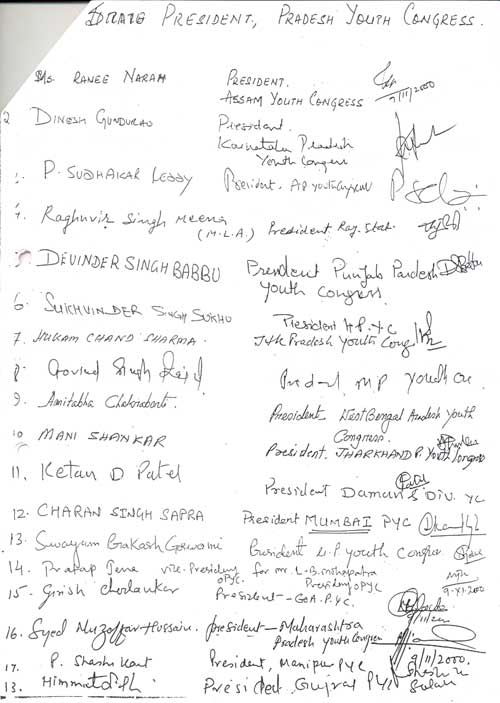 PRESIDENT, PRADESH YOUTH CONGRESS.
Ms. RANEE NARAH PRESIDENT.
ASSAM YOUTH CONGRESS 9/11/2000
2 DINESH GUNDURAO President.
Karnataka Pradesh
Youth Congress
P. SUDHAKAR REDDY President. AP youth Congress
4. Raghuvir Singh Meena
(M.L.A.) President Raj. State.
5 DEVINDER SINGH BABBU President Punjab Pardesh
Youth Congress.
6 SUKHVINDER SINGH SUKHU President H.P. Y.C
7. HUKAM CHAND SHARMA. J&K Pradesh Youth Cong
8. Govind Singh President MP Youth
9. Amitabha Chakraborti. President West Bengal Pradesh Youth
Congress.
10 MANI SHANKAR President. JHARKHAND P. Youth Congress
11. Ketan D Patel President Daman & DIU. YC
12. CHARAN SINGH SAPRA President MUMBAI PYC
13. Swayam Prakash Goswami President U.P youth Congress
14. Pratap Jena vice-President OPYC. for Mr. L.B. Mohapatra
President OPYC 9.XI.2000
15. Girish Chodankar President - GOA. P.Y.C.
16. Syed Muzaffar Hussain. President - Maharashtra
Pradesh Youth Congress 9/11/2000.
17. P. Sharat President, Manipur PYC
13. Himmatsinh President. Gujrat PYC